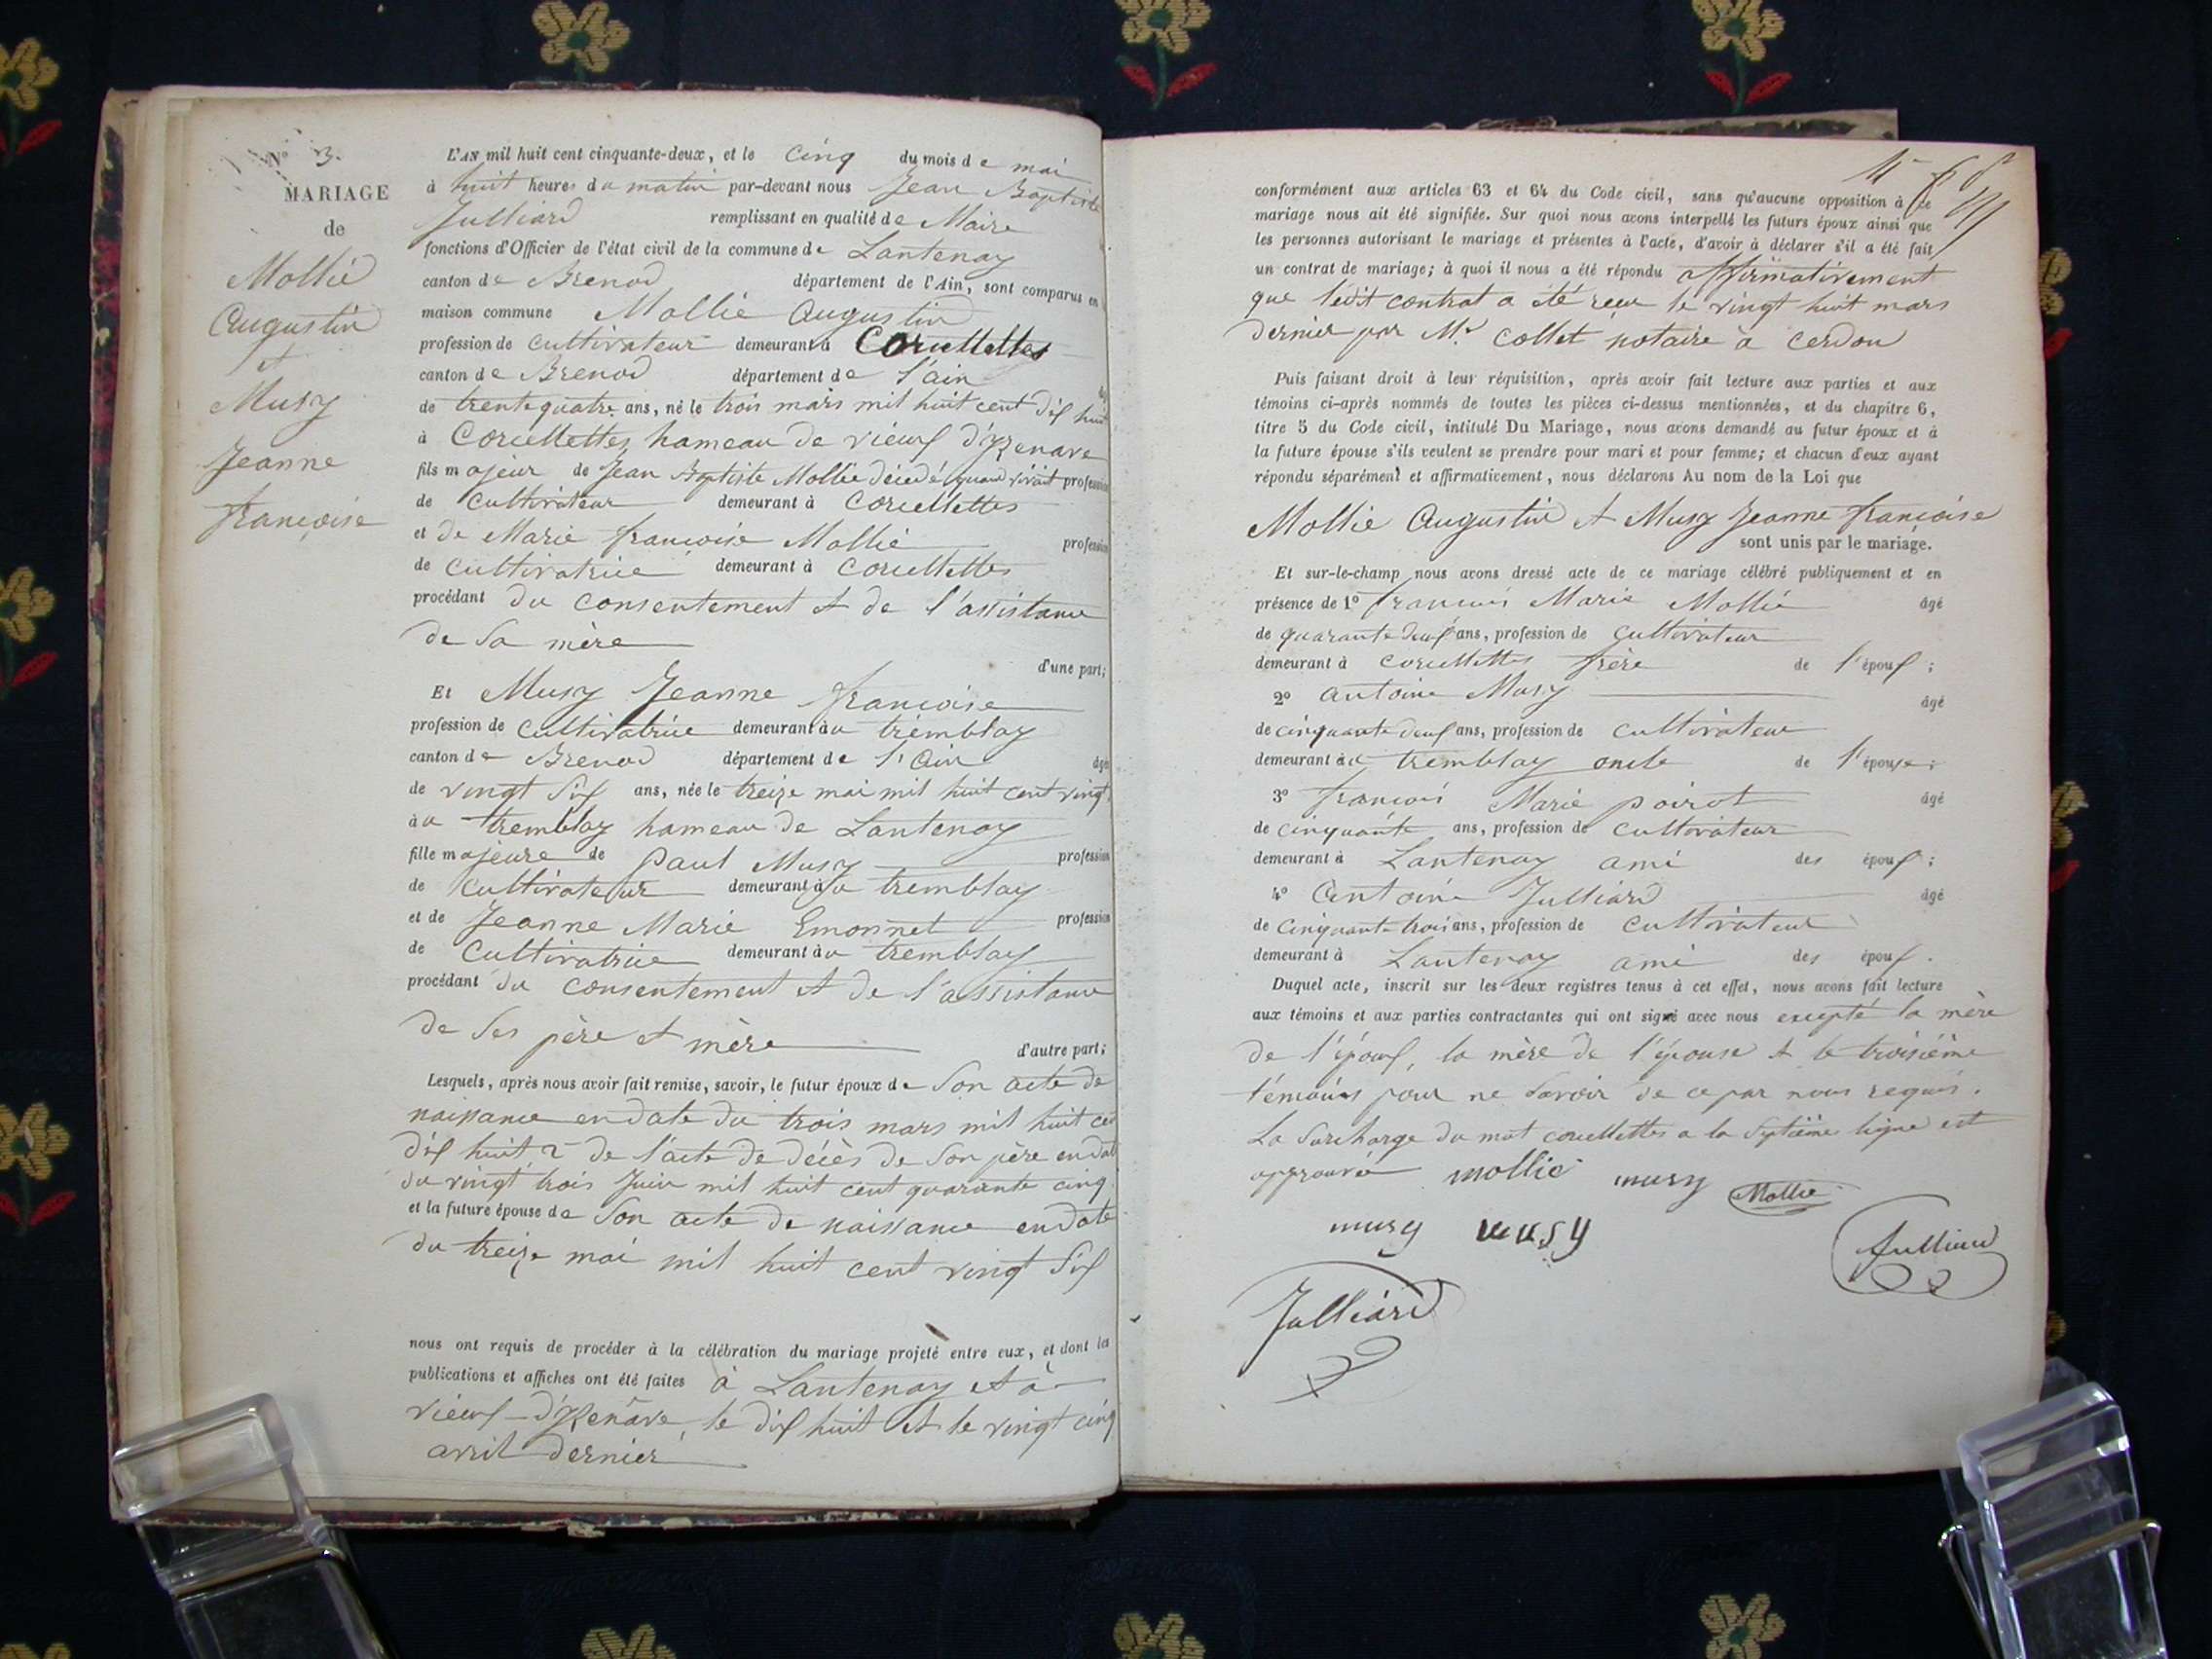 N° 3.
MARIAGE
de
Mollié
Augustin
et
Musy
Jeanne
françoise
L'AN mil huit cent cinquante-deux, et le cinq du mois de mai
à huit heures du matin par-devant nous Jean Baptiste
Julliard remplissant en qualité de Maire
fonctions d'Officier de l'état civil de la commune de Lantenay
canton de Brenod département de l'Ain, sont comparus en
maison commune Mollié Augustin
profession de cultivateur demeurant à Corcellettes
canton de Brenod département de l'ain
de trente quatre ans, né le trois mars mil huit cent dix huit
à Corcellettes hameau de vieux d'izenave
fils majeur de Jean Baptiste Mollié décédé quand vivait profession
de cultivateur demeurant à corcellettes
et de Marie françoise Mollié profession
de cultivatrice demeurant à corcellettes
procédant du consentement et de l'assistance
de sa mère
d'une part;
Et Musy Jeanne françoise
profession de cultivatrice demeurant au tremblay
canton de Brenod département de l'Ain âgée
de vingt six ans, née le treize mai mil huit cent vingt
au tremblay hameau de Lantenay
fille majeure de Paul Musy profession
de cultivateur demeurant au tremblay
et de Jeanne Marie Emonnet profession
de cultivatrice demeurant au tremblay
procédant du consentement et de l'assistance
de ses père et mère
d'autre part;
Lesquels, après nous avoir fait remise, savoir, le futur époux de son acte de
naissance en date du trois mars mil huit cent
dix huit 2° de l'acte de décès de son père en date
du vingt trois Juin mil huit cent quarante cinq
et la future épouse de son acte de naissance en date
du treize mai mil huit cent vingt six
nous ont requis de procéder à la célébration du mariage projeté entre eux, et dont les
publications et affiches ont été faites à Lantenay et à
vieux-d'izenave, le dix huit et le vingt cinq
avril dernier
conformément aux articles 63 et 64 du Code civil, sans qu'aucune opposition à ce
mariage nous ait été signifiée. Sur quoi nous avons interpellé les futurs époux ainsi que
les personnes autorisant le mariage et présentes à l'acte, d'avoir à déclarer s'il a été fait
un contrat de mariage; à quoi il nous a été répondu affirmativement
que ledit contrat a été reçu le vingt huit mars
dernier par Mr collet notaire à cerdon
Puis faisant droit à leur réquisition, après avoir fait lecture aux parties et aux
témoins ci-après nommés de toutes les pièces ci-dessus mentionnées, et du chapitre 6,
titre 5 du Code civil, intitulé Du Mariage, nous avons demandé au futur époux et à
la future épouse s'ils veulent se prendre pour mari et pour femme; et chacun d'eux ayant
répondu séparément et affirmativement, nous déclarons Au nom de la Loi que
Mollié Augustin et Musy Jeanne françoise
sont unis par le mariage.
Et sur-le-champ nous avons dressé acte de ce mariage célébré publiquement et en
présence de 1° françois Marie Mollié âgé
de quarante deux ans, profession de cultivateur
demeurant à corcellettes frère de l'époux;
2° antoine Musy âgé
de cinquante deux ans, profession de cultivateur
demeurant au tremblay oncle de l'épouse;
3° françois Marie poirot âgé
de cinquante ans, profession de cultivateur
demeurant à Lantenay ami des époux;
4° Antoine Julliard âgé
de cinquante trois ans, profession de cultivateur
demeurant à Lantenay ami des époux.
Duquel acte, inscrit sur les deux registres tenus à cet effet, nous avons fait lecture
aux témoins et aux parties contractantes qui ont signé avec nous excepté la mère
de l'époux, la mère de l'épouse et le troisième
témoins pour ne savoir de ce par nous requis.
La surcharge du mot corcellettes a la septième ligne est
approuvée mollié musy Mollié
musy musy Julliard
Julliard